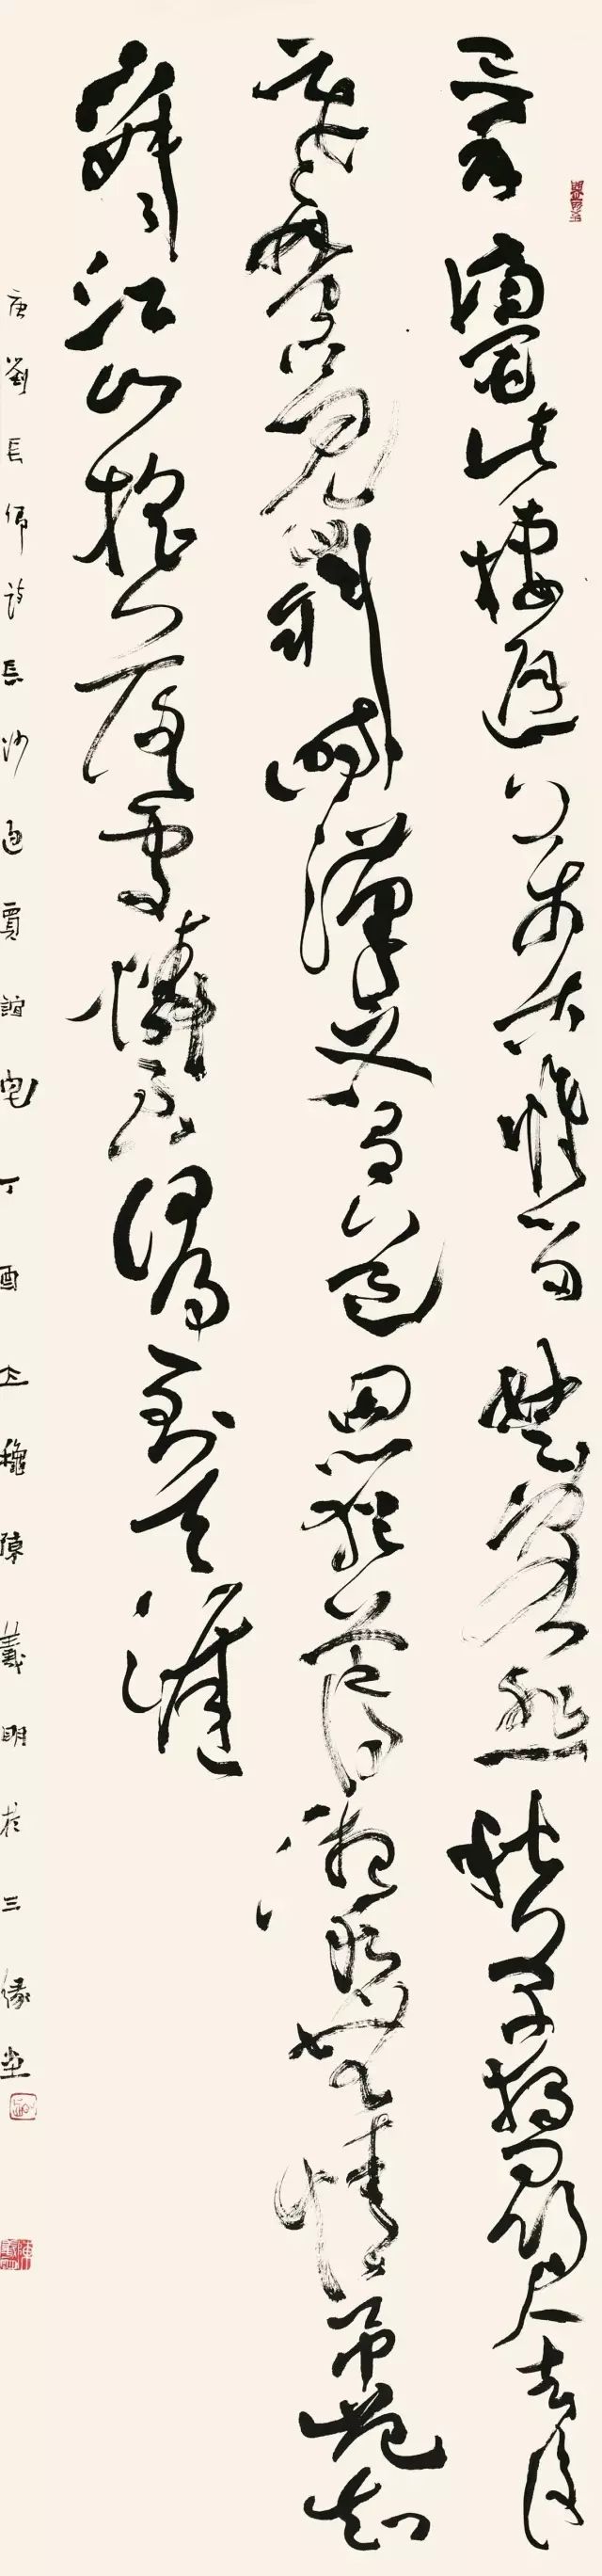 三年謫宦此棲遲萬古惟留楚客悲秋草獨尋人去後
寒林空見日斜時漢文有道恩猶薄湘水無情弔豈知
寂寂江山搖落處憐君何事到天涯
唐劉長卿詩長沙過賈誼宅丁酉立穐陳羲明於三緣堂